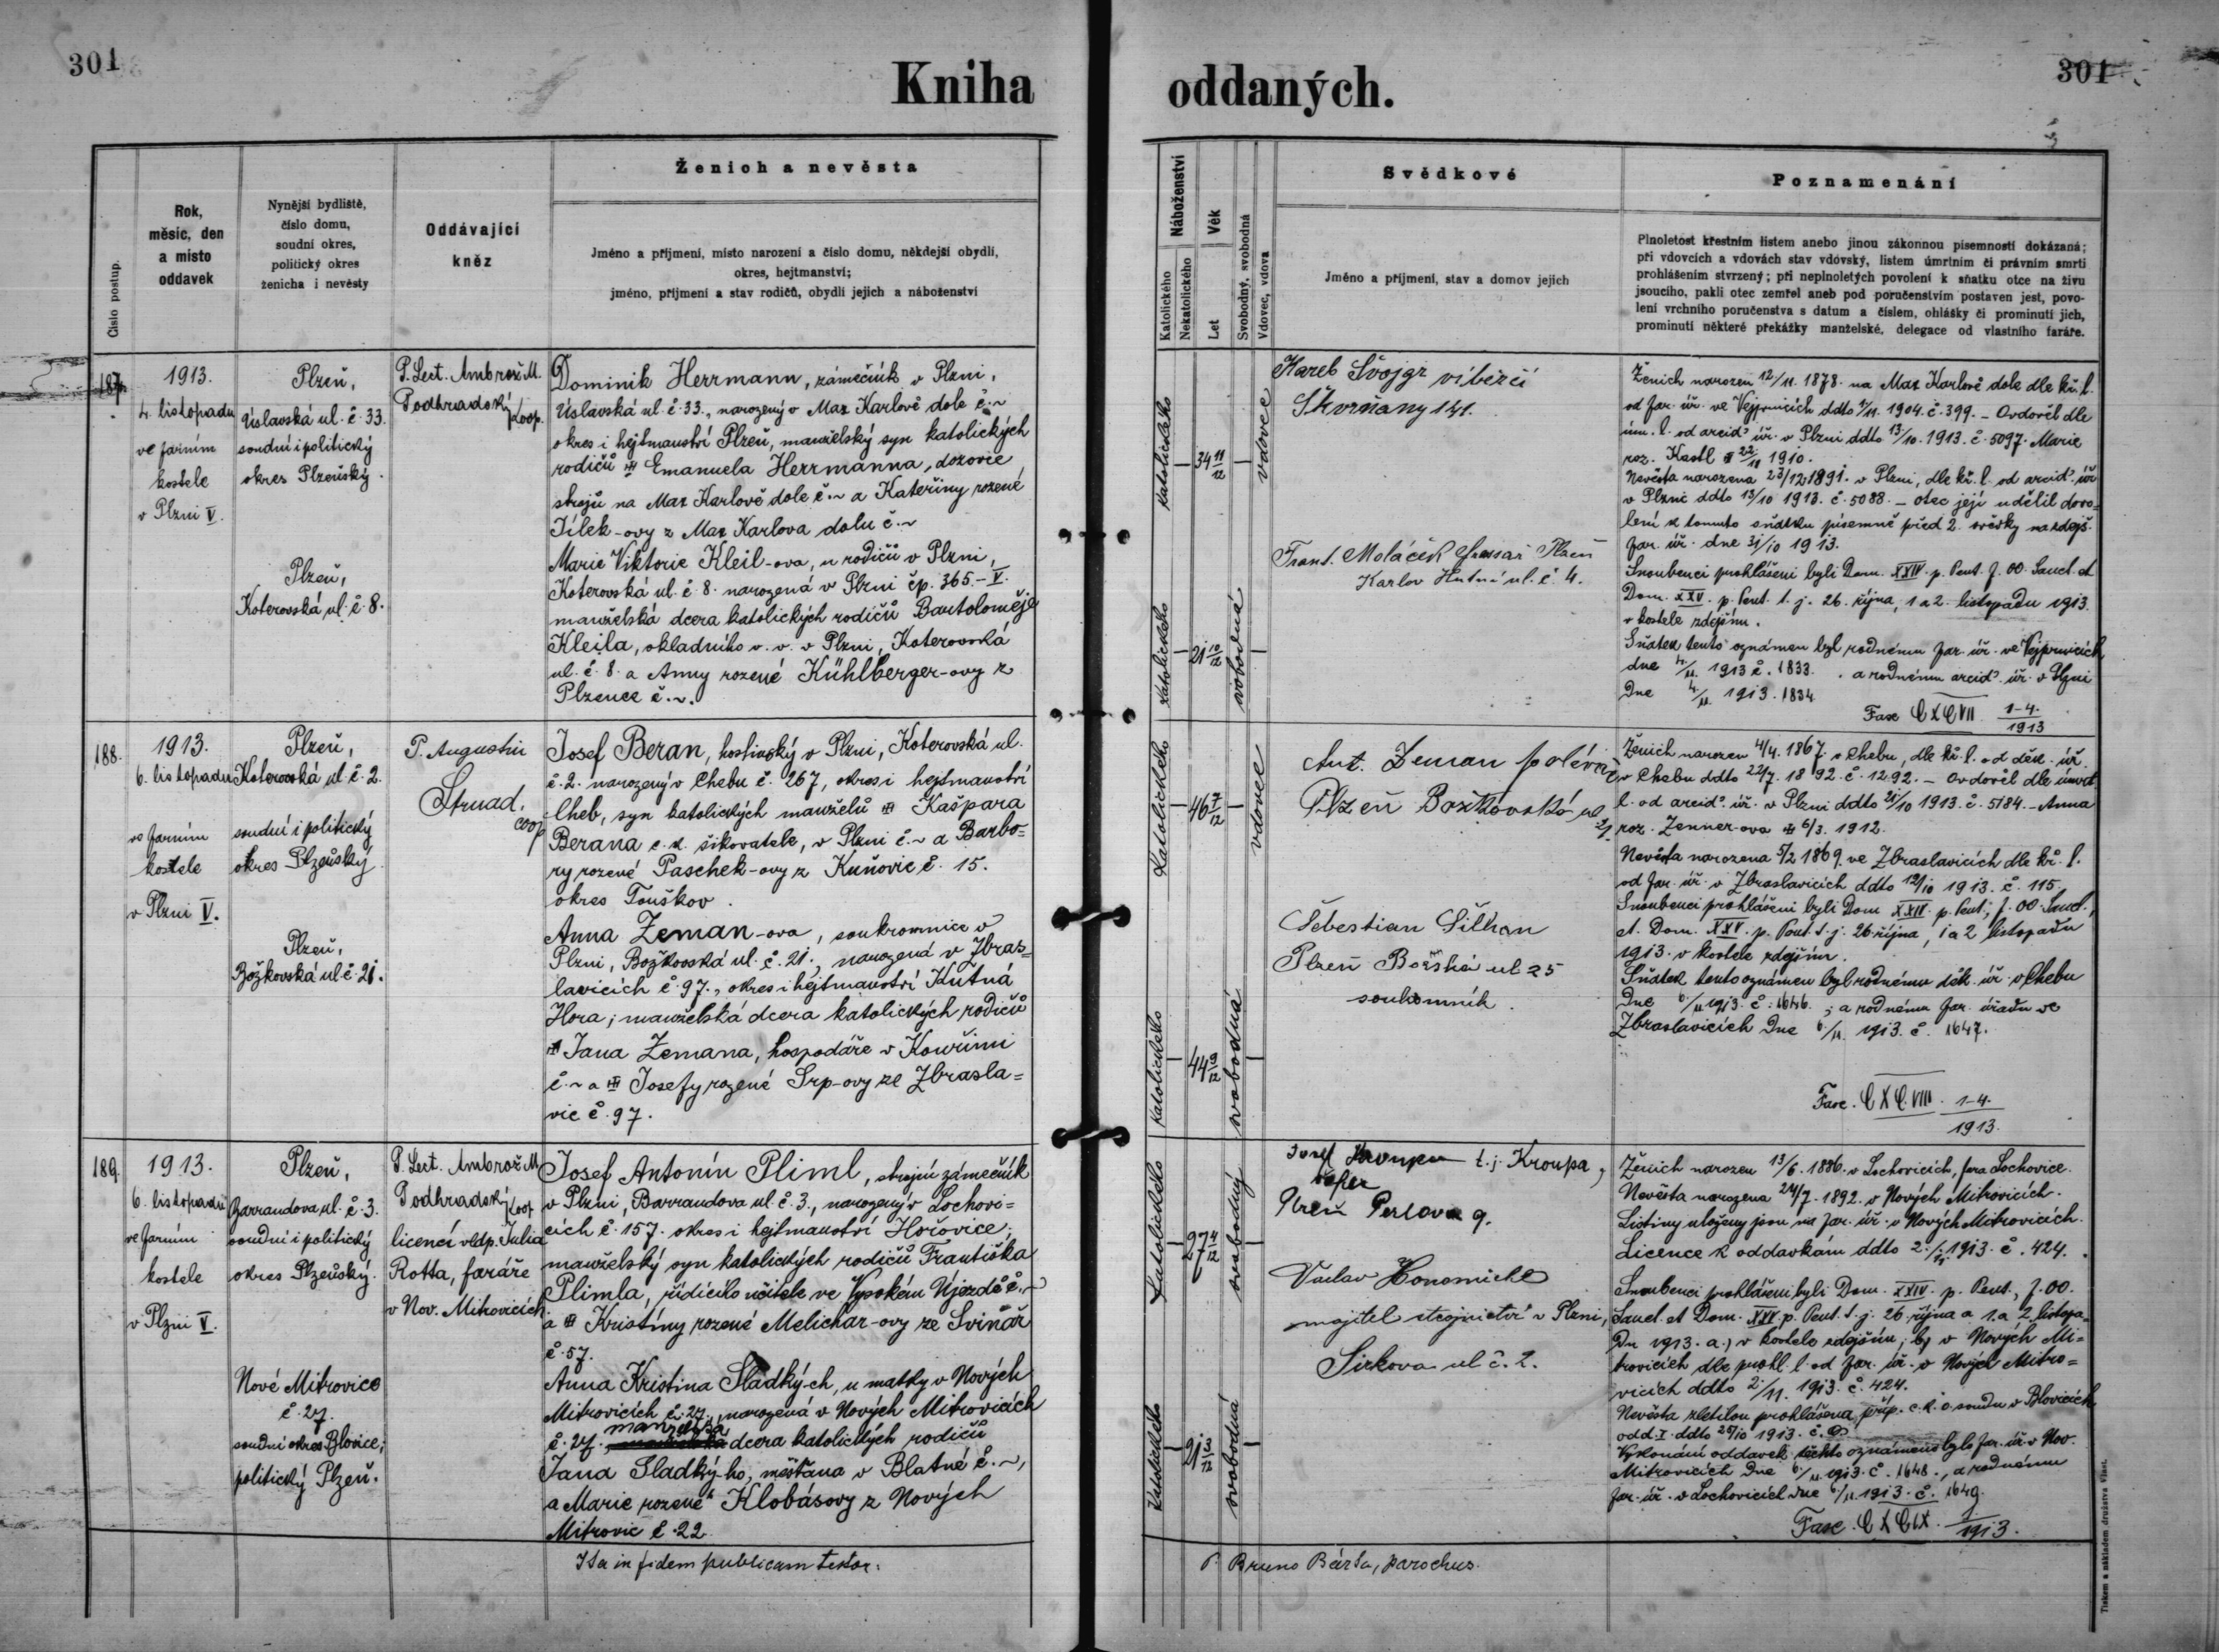 301
Kniha
oddaných.
301
Číslo postup.
Rok,
měsíc, den
a místo
oddavek
Nynější bydliště,
číslo domu,
soudní okres,
politický okres
ženicha i nevěsty
Oddávající
kněz
Ženich a nevěsta
Jméno a příjmení, místo narození a číslo domu, někdejší obydlí,
okres, hejtmanství;
jméno, příjmení a stav rodičů, obydlí jejich a náboženství
Náboženství
Katolického
Nekatolického
Věk
Let
Svobodný, svobodná
Vdovec, vdova
Svědkové
Jméno a příjmení, stav a domov jejich
Poznamenání
Plnoletost křestním listem anebo jinou zákonnou písemností dokázaná;
při vdovcích a vdovách stav vdovský, listem úmrtním či právním smrti
prohlášením stvrzený; při neplnoletých povolení k sňatku otce na živu
jsoucího, pakli otec zemřel aneb pod poručenstvím postaven jest, povo-
lení vrchního poručenstva s datum a číslem, ohlášky či prominutí jich,
prominutí některé překážky manželské, delegace od vlastního faráře.
187.
1913.
4. listopadu
ve farním
kostele
v Plzni V.
Plzeň,
Úslavská ul. č. 33.
soudní i politický
okres Plzeňský.
Plzeň,
Koterovská ul. č. 8.
P. Lect. Ambrož M.
Podhradský
koop.
Dominik Herrmann, zámečník v Plzni,
Úslavská ul. č. 33., narozený v Max Karlově dole č. ~
okres i hejtmanství Plzeň, manželský syn katolických
rodičů Emanuela Herrmanna, dozorce
strojů na Max Karlově dole č. ~ a Kateřiny rozené
Jílek-ovy z Max Karlova dolu č. ~
Marie Viktorie Kleil-ova, u rodičů v Plzni,
Koterovská ul. č. 8. narozená v Plzni čp. 365.-V.
manželská dcera katolických rodičů Bartoloměje
Kleila, okladníka v. v. v Plzni, Koterovská
ul. č. 8. a Anny rozené Kühlberger-ovy z
Plzence č. ~.
katolického
34 11/12
vdovec
katolického
21 10/12
svobodná
Karel Švojgr
Skvrňany 141.
Frant. Moláček Plzeň
Karlov Hutní ul. č. 4.
Ženich narozen 12/11. 1878. na Max Karlově dole dle kř. l.
od far. úř. ve Vejprnicích ddto 1904. č. 399. – Ovdověl dle
úm. l. od arcid. úř. v Plzni ddto 13/10. 1913. č. 5097. Marie
roz. Kastl 1910.
Nevěsta narozena 23/12 1891. v Plzni, dle kř. l. od arcid. úř.
v Plzni ddto 13/10 1913. č. 5088. – otec její udělil dovo=
lení k tomuto sňatku písemně před 2. svědky na zdejš.
far. úř. dne 31/10 1913.
Snoubenci prohlášeni byli Dom. XXIV. p. Pent. f. OO. Sanct. et
Dom. XXV. p. Pent. t. j. 26. října, 1 a 2. listopadu 1913.
v kostele zdejším.
Sňatek tento oznámen byl rodnému far. úř. ve Vejprnicích
dne 4/11. 1913 č. 1833. a rodnému arcid. úř. v Plzni
dne 4/11. 1913. 1834.
Fasc CXCVII 1-4.
1913
188.
1913.
6. listopadu
ve farním
kostele
v Plzni V.
Plzeň,
Koterovská ul. č. 2.
soudní i politický
okres Plzeňský.
Plzeň,
Božkovská ul. č. 21.
P. Augustin
Strnad.
coop
Josef Beran, hostinský v Plzni, Koterovská ul.
č. 2. narozený v Chebu č. 267, okres i hejtmanství
Cheb, syn katolických manželů Kašpara
Berana c. k. šikovatele, v Plzni č. ~ a Barbo=
ry rozené Paschek-ovy z Kuňovic č. 15.
okres Touškov.
Anna Zeman-ova, soukromnice v
Plzni, Božkovská ul. č. 21., narozená v Zbras=
lavicích č. 97., okres i hejtmanství Kutná
Hora, manželská dcera katolických rodičů
Jana Zemana, hospodáře v Kouřimi
č. ~ a Josefy rozené Srp-ovy ze Zbrasla=
vic č. 97.
katolického
46 7/12
vdovec
katolického
44 9/12
svobodná
Ant. Zeman
Plzeň Božkovská ul 21
Šebestian Šilhan
Plzeň Borská ul 25
soukromník.
Ženich narozen 4/4. 1867. v Chebu, dle kř. l. od děk. úř.
v Chebu ddto 22/7. 1892. č. 1292. – Ovdověl dle úmrt.
l. od arcid. úř. v Plzni ddto 21/10 1913. č. 5184. – Anna
roz. Zenner-ova 6/3. 1912.
Nevěsta narozena 5/2 1869. ve Zbraslavicích dle kř. l.
od far. úř. v Zbraslavicích ddto 12/10 1913. č. 115.
Snoubenci prohlášeni byli Dom XXIV. p. Pent., f. OO. Sanct.,
et. Dom. XXV. p. Pent. t. j. 26. října, 1 a 2 listopadu
1913. v kostele zdejším.
Sňatek tento oznámen byl rodnému děk. úř. v Chebu
dne 6./11 1913. č. 1646.; a rodnému far. úřadu ve
Zbraslavicích dne 6./11. 1913. č. 1647.
Fasc. CXCVIII. 1-4.
1913.
189.
1913.
6. listopadu
ve farním
kostele
v Plzni V.
Plzeň,
Barrandova ul. č. 3.
soudní i politický
okres Plzeňský.
Nové Mitrovice
č. 27.
soudní okres Blovice;
politický Plzeň.
P. Lect. Ambrož M
Podhradský
koop
licencí vldp. Julia
Rotta, faráře
v Nov. Mitrovicích.
Josef Antonín Pliml, strojní zámečník
v Plzni, Barrandova ul. č. 3., narozený v Lochovi=
cích č. 157. okres i hejtmanství Hořovice,
manželský syn katolických rodičů Františka
Plimla, řídícího učitele ve Vysokém Újezdě č. ~
a Kristiny rozené Melichar-ovy ze Svinař
č. 57.
Anna Kristina Sladký-ch, u matky v Nových
Mitrovicích č. 27., narozená v Nových Mitrovicích
č. 27. manželská dcera katolických rodičů
Jana Sladký-ho, měšťana v Blatné č. ~,
a Marie rozené Klobásovy z Nových
Mitrovic č. 22.
katolického
27 4/12
svobodný
katolického
21 3/12
svobodná
Josef Kroupa t. j. Kroupa,
Plzeň Perlova 9.
Václav Honomichl
majitel strojnictví v Plzni,
Sirkova ul č. 2.
Ženich narozen 13/6. 1886. v Lochovicích, fara Lochovice.
Nevěsta narozena 24/7. 1892. v Nových Mitrovicích.
Listiny uloženy jsou na far. úř. v Nových Mitrovicích.
Licence k oddavkám ddto 2./11 1913. č. 424.
Snoubenci prohlášeni byli Dom. XXIV. p. Pent., f. OO.
Sanct. et Dom. XXV. p. Pent. t. j. 26. října a 1. a 2. listopa=
du 1913. a.) v kostele zdejším, b) v Nových Mi=
trovicích dle prohl. l. od far. úř. v Nových Mitro=
vicích ddto 2./11. 1913. č. 424.
Nevěsta zletilou prohlášena příp. c. k. o. soudu v Blovicích
odd. I. ddto 1913. č.
Vykonání oddavek těchto oznámeno bylo far. úř. v Nov.
Mitrovicích dne 6./11. 1913. č. 1648., a rodnému
far. úř. v Lochovicích dne 6/11. 1913. č. 1649.
Fasc. CXCIX. 1/1913.
Ita in fidem publicam testor:
P. Bruno Bárta, parochus.
Tiskem a nákladem družstva Vlast.